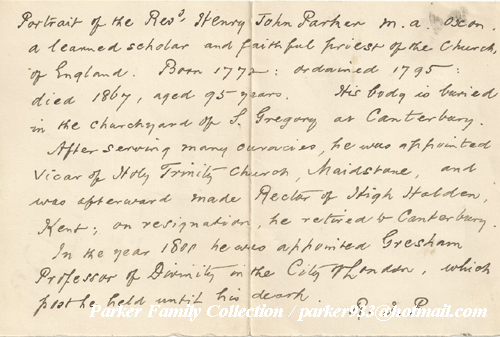 Portrait of the Revd. Henry John Parker M.A. Oxon.
a learned scholar and faithful priest of the Church
of England. Born 1772: ordained 1795:
died 1867, aged 95 years. His body is buried
in the churchyard of S. Gregory at Canterbury.
After serving many curacies, he was appointed
Vicar of Holy Trinity Church, Maidstone, and
was afterward made Rector of High Halden,
Kent; on resignation, he retired to Canterbury.
In the year he was appointed Gresham
Professor of Divinity in the City of London, which
post he held until his death.
Parker Family Collection / parker943@hotmail.com